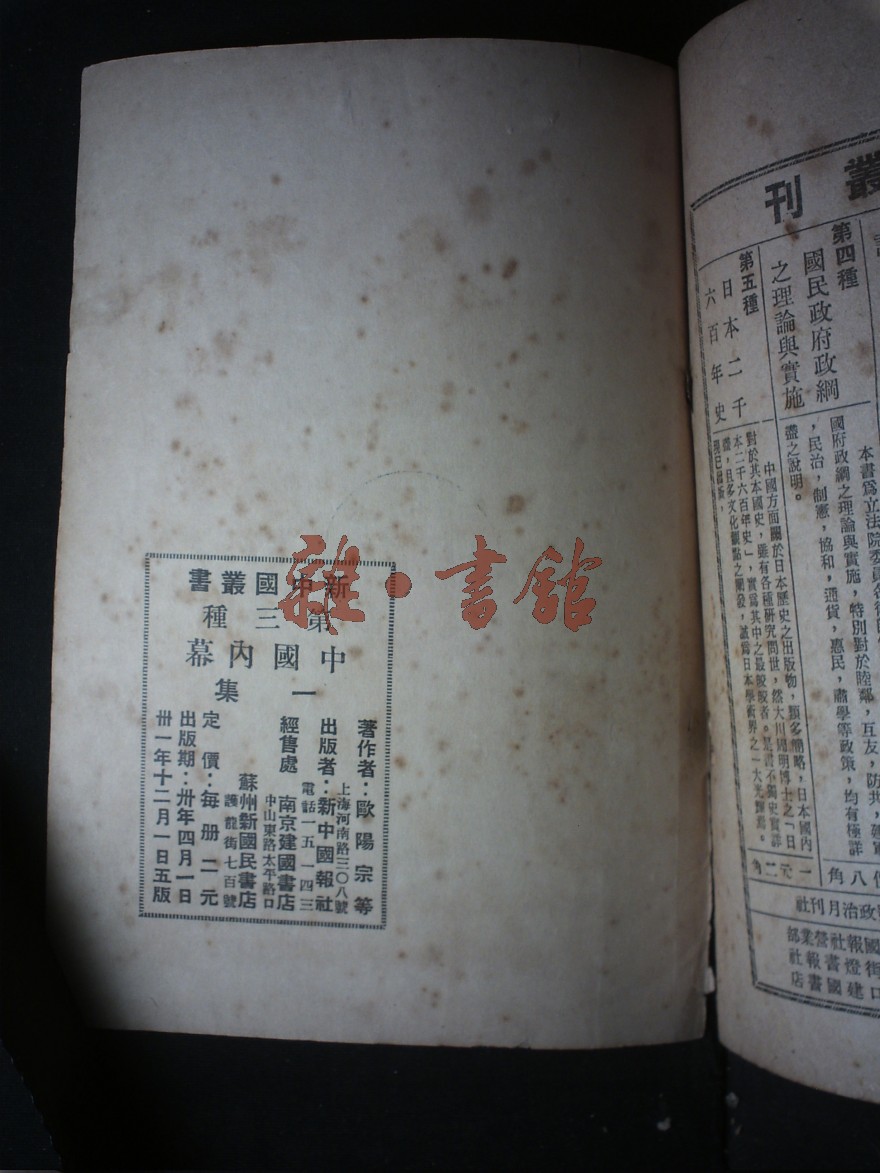 新中國叢書
第三種
中國內幕
一集
著作者：歐陽宗等
上海河南路三〇八號
出版者：新中國報社
電話一五一四三
經售處
南京建國書店
中山東路太平路口
蘇州新國民書店
護龍街七百號
定價：每册二元
出版期：卅年四月一日
卅一年十二月一日五版
雜·書館
叢刊
第四種
國民政府政綱
之理論與實施
本書爲立法院委員
國府政綱之理論與實施，特別對於睦鄰，互友，防共，
，民治，制憲，協和，通貨，惠民，肅學等政策，均有極詳
盡之說明。
八角
第五種
日本二千
六百年史
中國方面關於日本歷史之出版物，類多簡略，日本國內
對於其本國史，雖有各種研究問世，然大川周明博士之「日
本二千六百年史」，實爲其中之最脫皎者。是書不獨史實詳
盡，且多文化觀點之闡發，誠爲日本學術界之一大光輝焉。
一元二角
政治月刊社
國報社營業部
街燈書報社
口建國書店